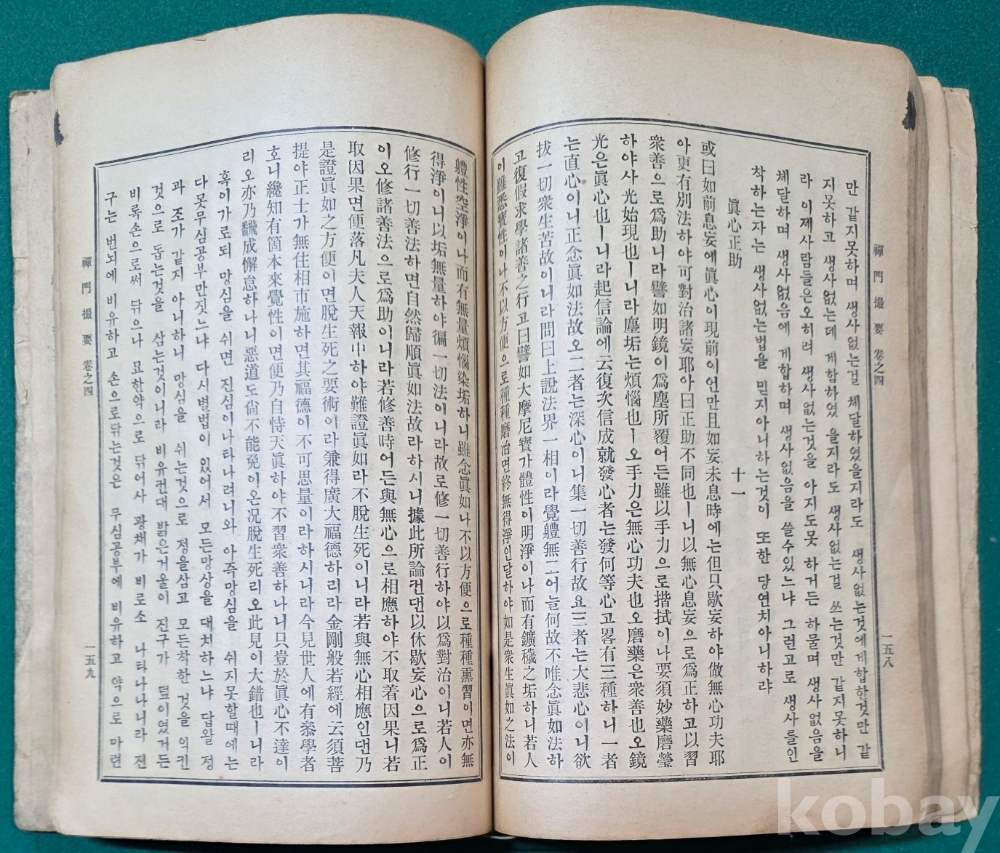 禪門撮要 卷之四
一五八
만 같지못하며 생사없는걸 체달하였을지라도 생사없는것에게합하것만 같
지못하고 생사없는데 게합하였을지라도 생사없는걸 쓰는것만 같지못하니
라 이제사람들은오히려 생사없는것을 아지도못하거든 하물며 생사없음을
체달하며 생사없음에 게합하며 생사없음을 쓸수있는냐 그런고로 생사를인
착하는자는 생사없는법을 믿지아니하는것이 또한 당연치아니하랴
十一
眞心正助
或曰如前息妄에眞心이現前이언만且如妄未息時에는但只歇妄하야做無心功夫耶
아更有別法하야可對治諸妄耶아曰正助不同也ㅣ니以無心息妄으로爲正하고以習
衆善으로爲助니라譬如明鏡이爲塵所覆어든雖以手力으로揩拭이나要須妙藥磨瑩
하야사光始現也ㅣ니라塵垢는煩惱也ㅣ오手力은無心功夫也오磨藥은衆善也오鏡
光은眞心也ㅣ니라起信論에云復次信成就發心者는發何等心고畧有三種하니一者
는直心이니正念眞如法故오二者는深心이니集一切善行故요三者는大悲心이니欲
拔一切衆生苦故이니라問曰上說法界一相이라覺體無二어늘何故不唯念眞如法하
고復假求學諸善之行고曰譬如大摩尼寶가體性이明淨이나而有鑛穢之垢하니若人
이雖悉寶性이나不以方便으로種種磨冶면終無得淨인달하야如是衆生眞如之法이
體性空淨이나而有無量煩惱染垢하니雖念眞如나不以方便으로種種熏習이면亦無
得淨이니以垢無量하야徧一切法이니라故로修一切善行하야以爲對治이니若人이
修行一切善法하면自然歸順眞如法故라하시니據此所論컨댄以休歇妄心으로爲正
이오修諸善法으로爲助이니라若修善時어든與無心으로相應하야不取着因果니若
取因果면便落凡夫人天報中하야難證眞如라不脫生死이니라若與無心相應인댄乃
是證眞如之方便이며脫生死之要術이라兼得廣大福德하리라金剛般若經에云須菩
提야正士가無住相布施하면其福德이不可思量이라하시니라今見世人에有叅學者
호니纔知有箇本來覺性이면便乃自恃天眞하야不習衆善하나니只豈於眞心不達이
리오亦乃飜成懈怠하나니惡道도尙不能免이온况脫生死리오此見이大錯也ㅣ니라
혹이가로되 망심을 쉬면 진심이나타나려니와 아즉망심을 쉬지못할때에는
다못무심공부만짓느냐 다시별법이 있어서 모든망상을 대치하느냐 답왈 정
과 조가 같지 아니하니 망심을 쉬는것으로 정을삼고 모든착한 것을 익킨
것으로 돕는것을 삼는것이니라 비유컨대 밝은거울이 진구가 덮이였거든
비록손으로써 닦으나 묘한약으로 닦어사 광채가 비로소 나타나나니라 진
구는 번뇌에 비유하고 손으로닦는것은 무심공부에 비유하고 약으로 마련
禪門撮要 卷之四
一五九
kobay